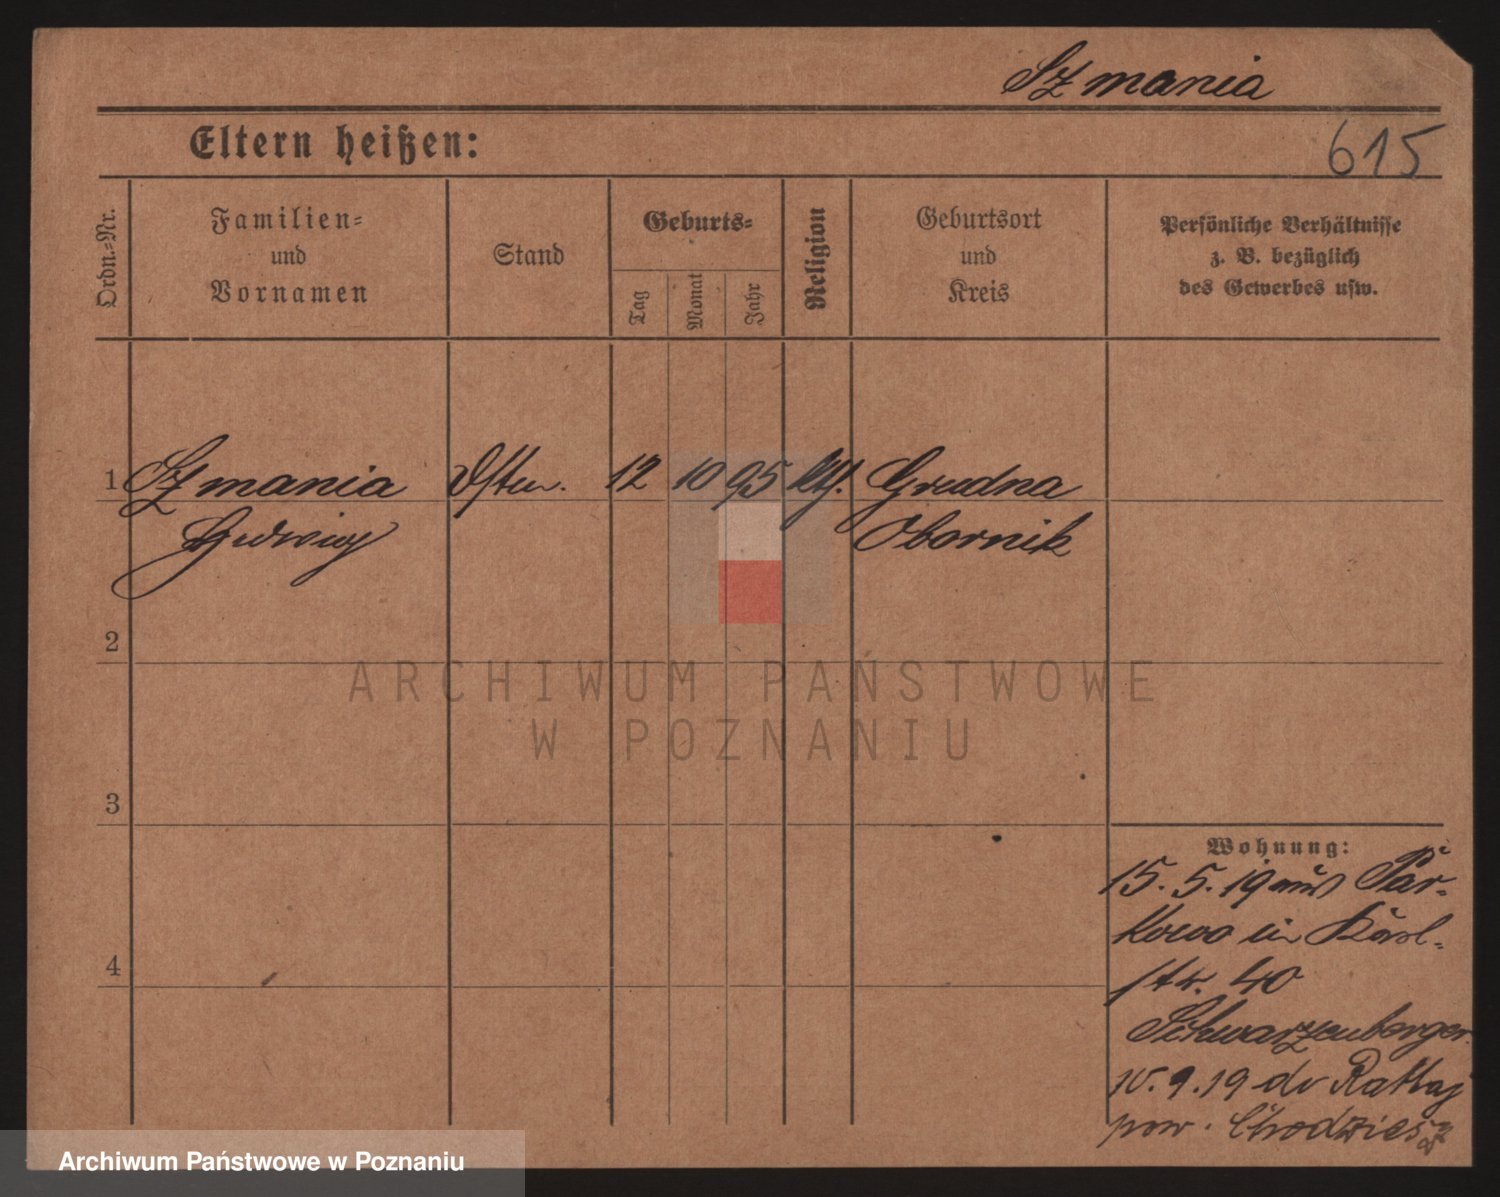 Szmania
615
Eltern heißen:
Ordn.-Nr.
Familien-
und
Vornamen
Stand
Geburts-
Tag
Monat
Jahr
Religion
Geburtsort
und
Kreis
Persönliche Verhältnisse
z. B. bezüglich
des Gewerbes usw.
1 Szmania 12 10 95 Grudna
Hedwig Obornik
2
3
4
Wohnung:
15. 5. 19 aus Par-
kowo in Karl-
str. 40
Schwarzenberger
10. 9. 19 do Rattaj
pow. Chodzież
ARCHIWUM PAŃSTWOWE
W POZNANIU
Archiwum Państwowe w Poznaniu